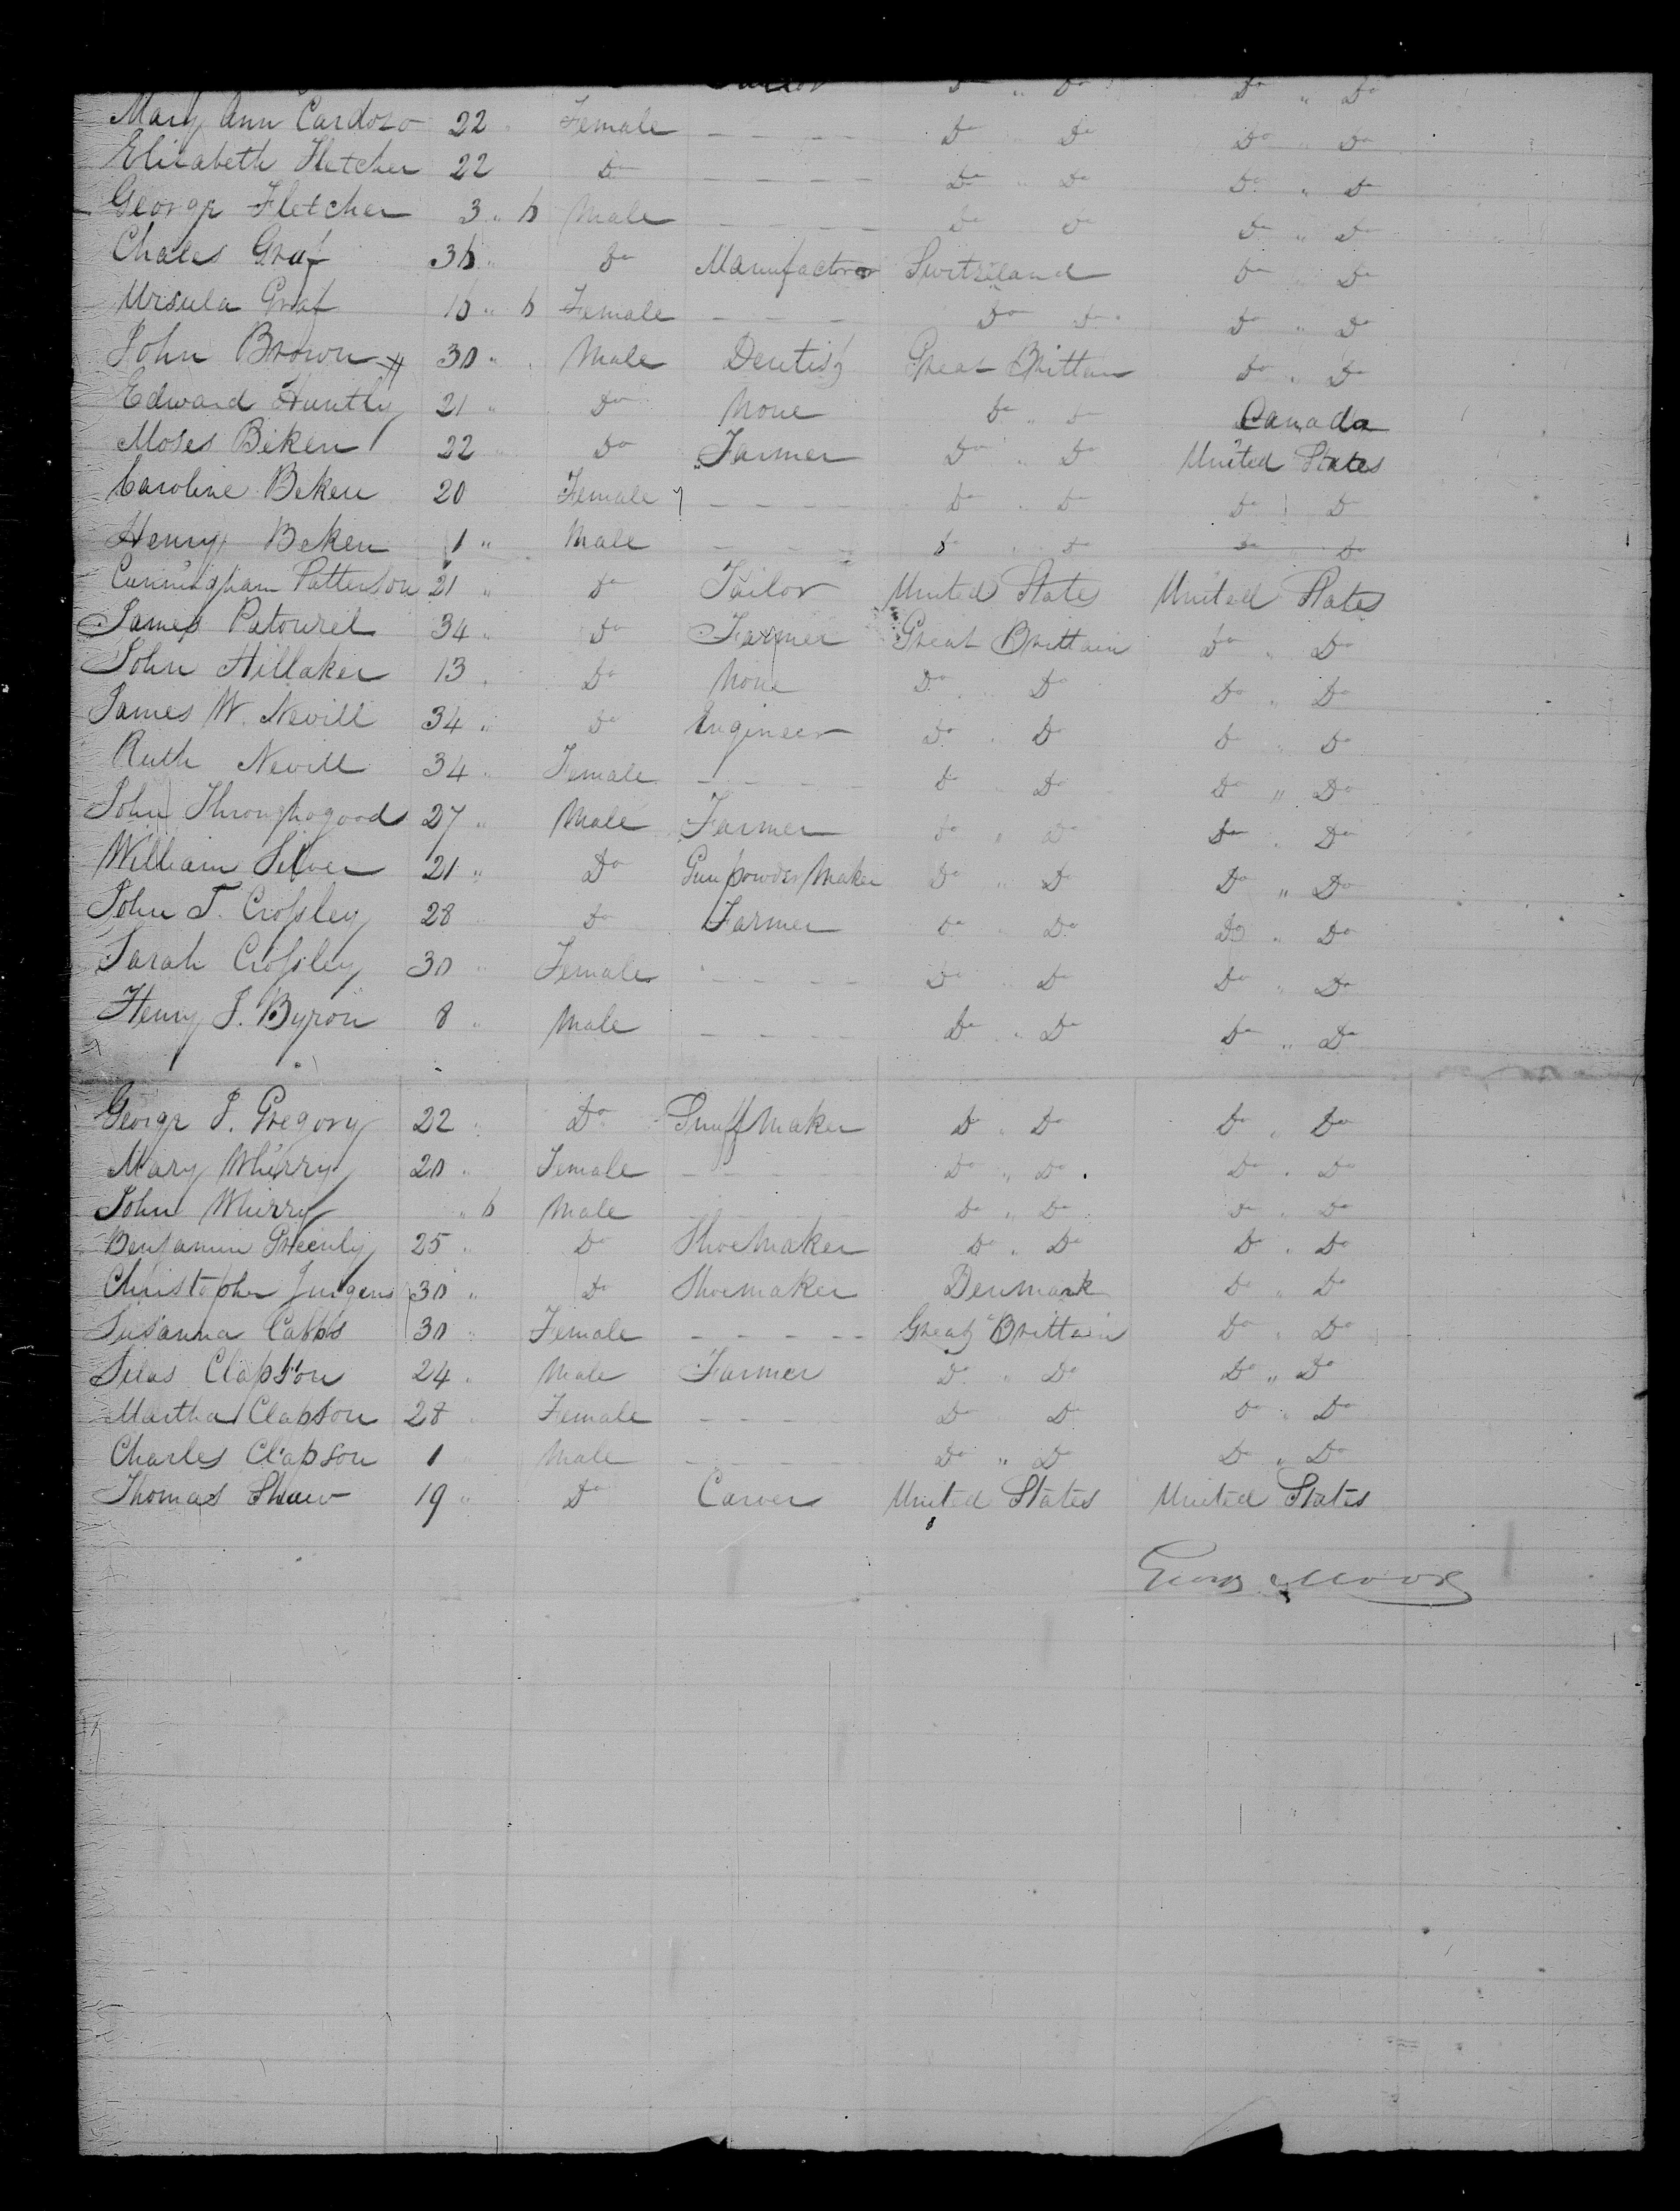 Do „ Do Do „ Do
Mary Ann Cardozo 22 „ Female – – – – Do Do Do „ Do
Elizabeth Fletcher 22 Do – – – – Do „ Do Do „ Do
George Fletcher 3 „ 6 Male – – – – Do Do Do „ Do
Chales Graf 36 „ Do Manufactror Switzeland Do „ Do
Ursula Graf 16 „ 6 Female – – – Do Do Do „ Do
John Brown 30 „ Male Dentist Great Brittan Do „ Do
Edward Huntly 21 „ Do None Do „ Do Canada
Moses Beken 22 „ Do Farmer Do „ Do United States
Caroline Beken 20 Female – – – – Do „ Do Do Do
Henry Beken 1 „ Male – – – Do „ Do Do „ Do
Cunningham Patterson 21 „ Do Tailor United States United States
James Patourel 34 „ Do Farmer Great Brittain Do „ Do
John Hillaker 13 „ Do None Do „ Do Do „ Do
James W. Nevill 34 „ Do Engineer Do „ Do Do „ Do
Ruth Nevill 34 „ Female – – – – Do „ Do Do „ Do
John Throughogood 27 „ Male Farmer Do „ Do Do „ Do
William Silver 21 „ Do Gunpowder Maker Do „ Do Do „ Do
John T. Crossley 28 „ Do Farmer Do „ Do Do „ Do
Sarah Crossley 30 „ Female – – – – Do „ Do Do „ Do
Henry J. Byron 8 „ Male – – – – Do „ Do Do „ Do
George J. Gregory 22 „ Do Snuff Maker Do „ Do Do „ Do
Mary Whirry 20 „ Female – – – Do „ Do Do „ Do
John Whirry „ 6 Male Do „ Do Do „ Do
Benjamin Greenly 25 „ Do Shoe Maker Do „ Do Do „ Do
Christopher Jurgens 30 „ Do Shoemaker Denmark Do „ Do
Susanna Cabbs 30 „ Female – – – – – Great Brittain Do „ Do
Silas Clapson 24 „ Male Farmer Do „ Do Do „ Do
Martha Clapson 28 „ Female – – – Do Do Do „ Do
Charles Clapson 1 Male – – – – Do „ Do Do „ Do
Thomas Shaw 19 „ Do Carver United States United States
George Moore